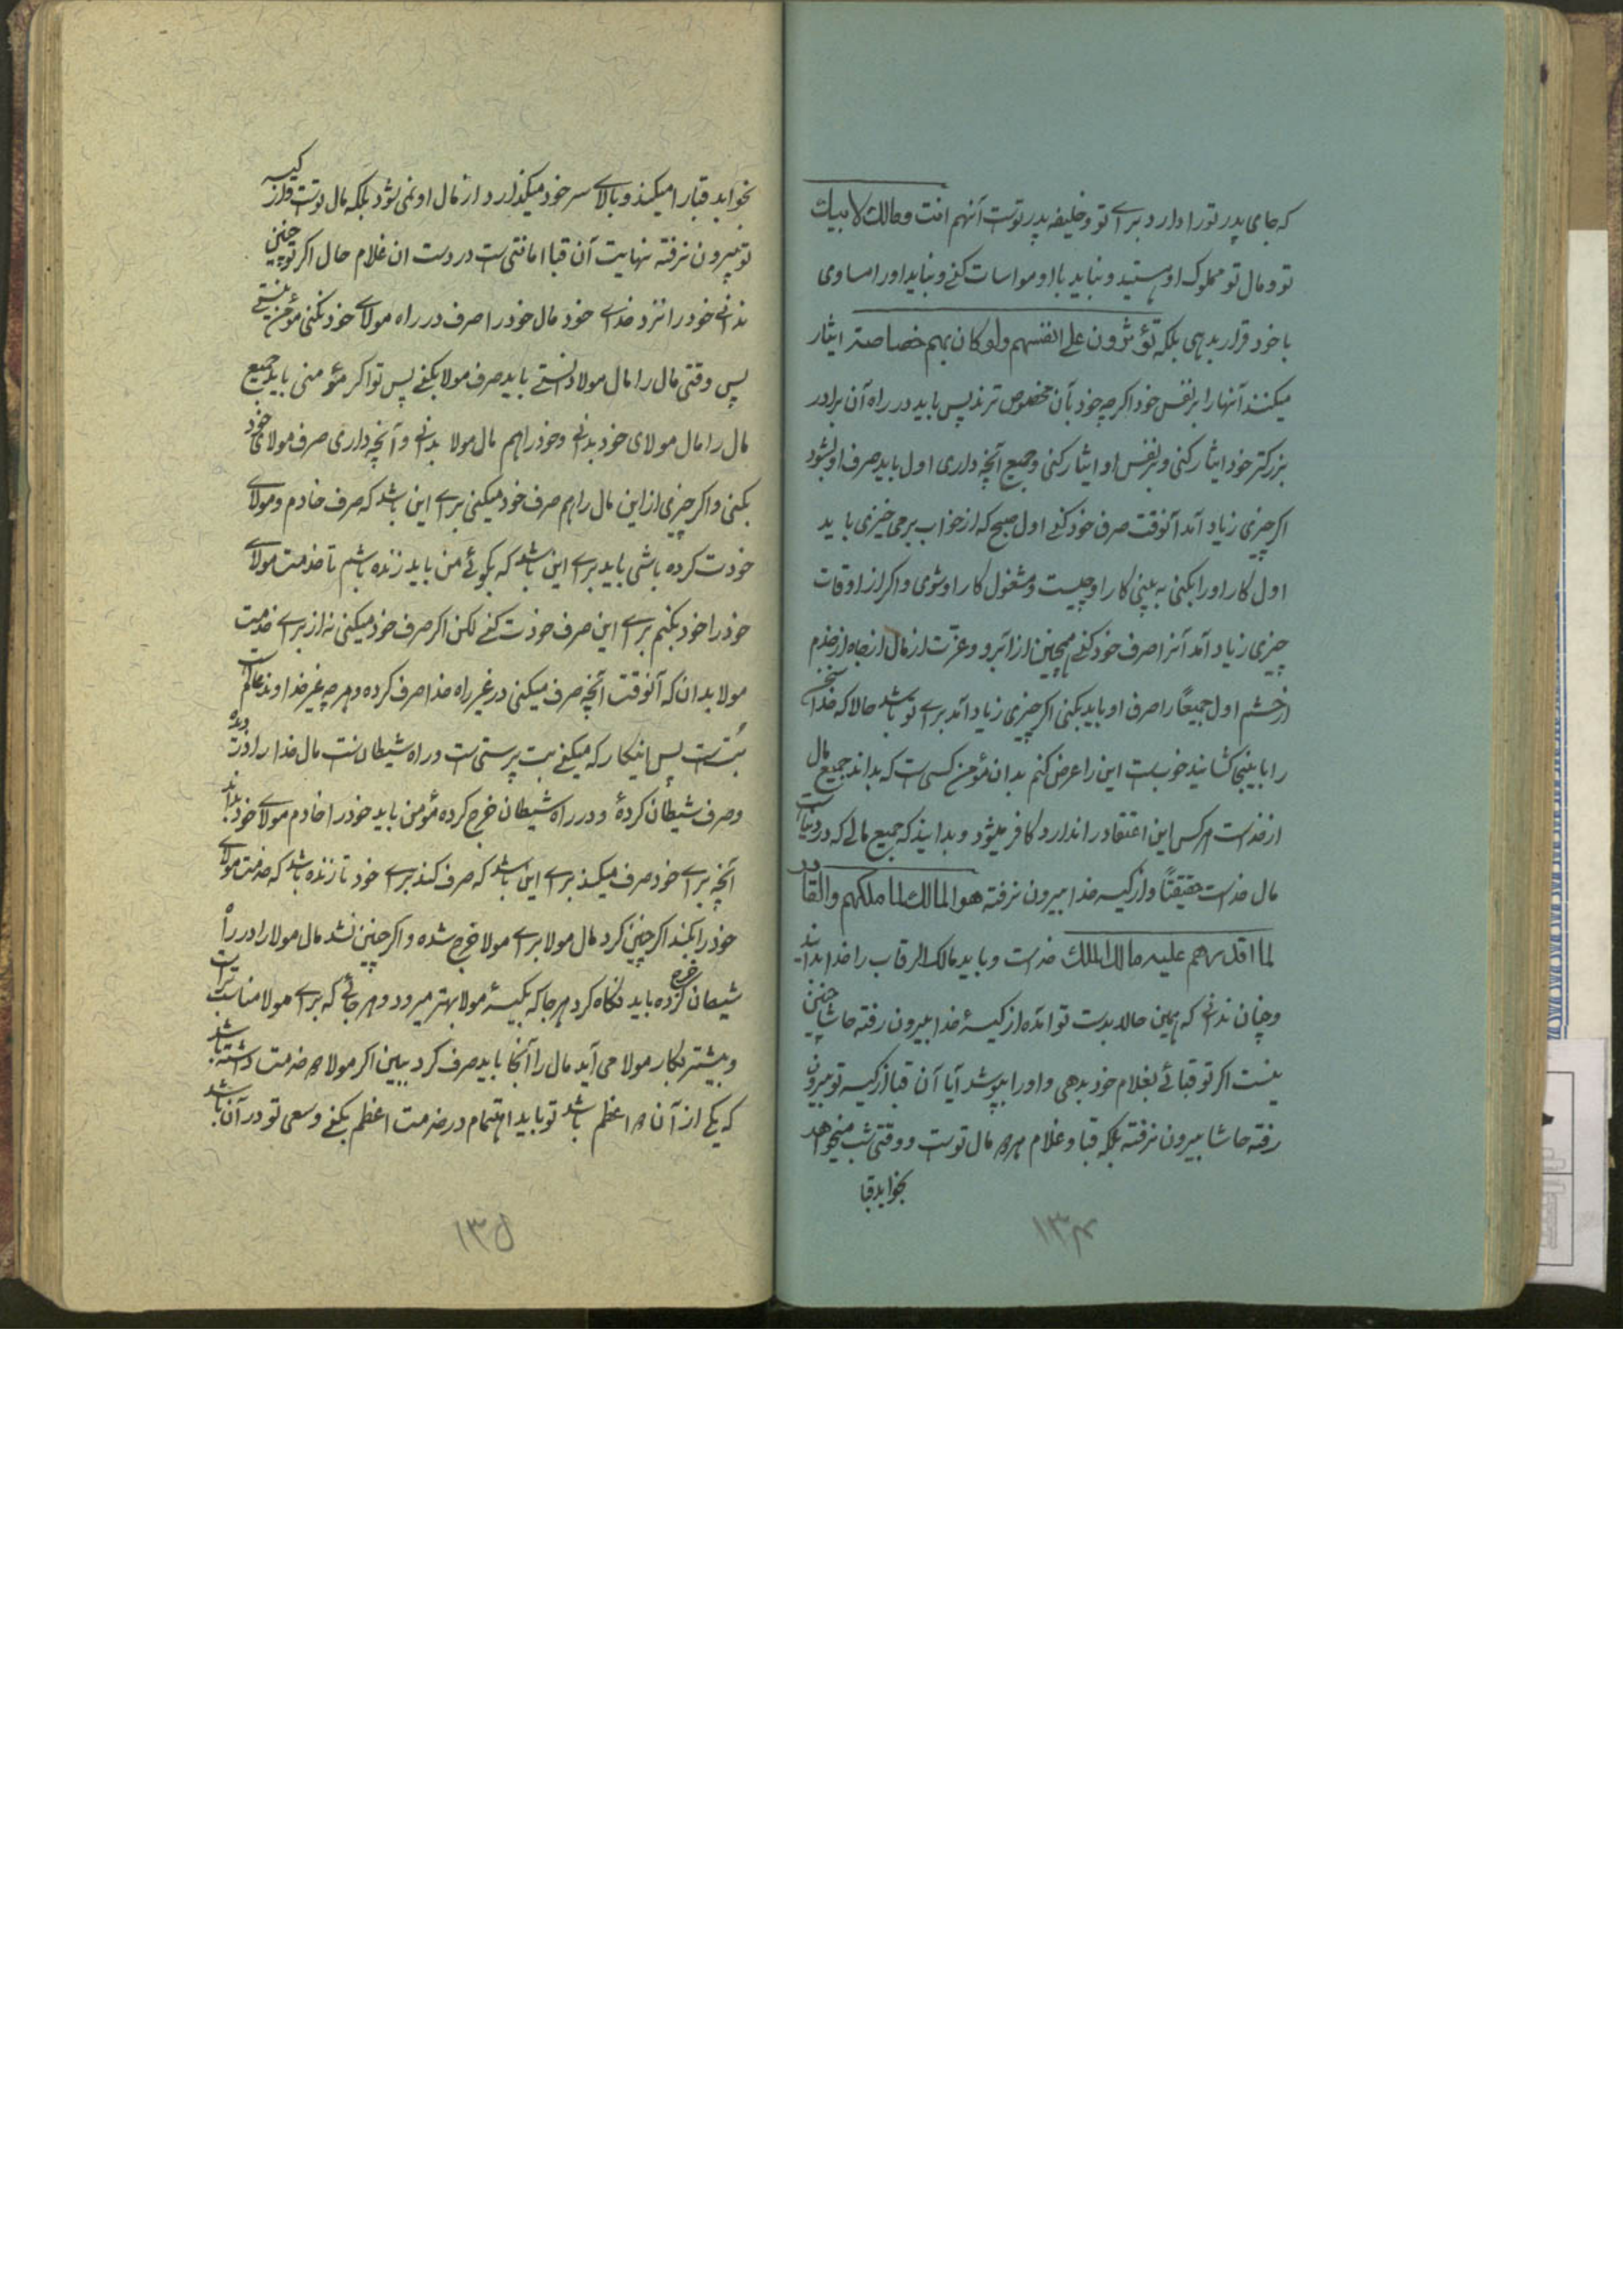 که جای پدر تو را دارد برای تو و خلیفه پدر تست آنهم انت و مالک لابیک
تو و مال تو مملوک او هستید و نباید با او مواسات کنی و نباید او را مساوی
با خود قرار بدهی بلکه تؤثرون علی انفسهم ولو کان بهم خصاصة ایثار
میکنند آنها را بر نفس خود اگرچه خود بآن مخصوص ترند پس باید در راه آن برادر
بزرگتر خود ایثار کنی و بر نفس او ایثار کنی و جمیع آنچه داری اول باید صرف او بشود
اگر چیزی زیاد آمد آنوقت صرف خود کنی اول صبح که از خواب برمی خیزی باید
اول کار او را بکنی به بینی کار او چیست و مشغول کار او شوی و اگر از اوقات
چیزی زیاد آمد آنرا صرف خود کنی همچنین از آبرو و عزّت از مال از جاه از خدم
از حشم اول جمیعاً را صرف او باید بکنی اگر چیزی زیاد آمد برای تو باشد حالا که خدا سخن
را باینجا کشانید خوبست این را عرض کنم بدان مؤمن کسی است که بداند جمیع مال
از خداست هر کس این اعتقاد را ندارد کافر میشود و بدانید که جمیع مالی که در دنیاست
مال خداست حقیقتاً و از کیسه خدا بیرون نرفته هو المالک لما ملکهم والقادر
لما اقدرهم علیه مالک الملک خداست و باید مالک الرقاب را خدا بداند
و چنان ندانی که همین حالا بدست تو آمده از کیسهٔ خدا بیرون رفته حاشا چنین
نیست اگر تو قبائی بغلام خود بدهی و او را بپوشد آیا آن قبا از کیسه تو بیرون
رفته حاشا بیرون نرفته بلکه قبا و غلام هر دو مال تو ست و وقتی شب میخواهد
بخوابد قبا
۱۳۴
بخوابد قبا را میکند و بالای سر خود میگذارد از مال او نمی شود بلکه مال تو ست و از کیسه
تو بیرون نرفته نهایت آن قبا امانتی ست در دست ان غلام حال اگر تو چنین
ندانی خود را نزد خدای خود مال خود را صرف در راه مولای خود نکنی مؤمن نیستی
پس وقتی مال را مال مولا دانستی باید صرف مولا بکنی پس تو اگر مؤمنی باید جمیع
مال را مال مولای خود بدانی و خود را هم مال مولا بدانی و آنچه داری صرف مولای خود
بکنی و اگر چیزی از این مال را هم صرف خود میکنی برای این باشد که صرف خادم و مولای
خودت کرده باشی باید برای این باشد که بگوئی من باید زنده باشم تا خدمت مولای
خود را خود بکنم برای این صرف خودت کنی لکن اگر صرف خود میکنی نه از برای خدمت
مولا بدان که آنوقت آنچه صرف میکنی در غیر راه خدا صرف کرده و هر چه غیر خداوند عالم است
بُت ست پس اینکار که میکنی بت پرستی ست و راه شیطان ست مال خدا را دزدیده
و صرف شیطان کردهٔ و در راه شیطان خرج کرده مؤمن باید خود را خادم مولای خود بداند
آنچه برای خود صرف میکند برای این باشد که صرف کند برای خود تا زنده باشد که خدمت مولای
خود را بکند اگر چنین کرد مال مولا برای مولا خرج شده و اگر چنین نشد مال مولا را در راه
شیطان خرج کرده باید نگاه کرد هر جا که بکیسهٔ مولا بهتر میرود و هر جائی که برای مولا مناسب تر است
و بیشتر بکار مولا می آید مال را آنجا باید صرف کرد ببین اگر مولا دو خدمت داشته باشد
که یکی از آن دو اعظم باشد تو باید اهتمام در خدمت اعظم بکنی و سعی تو در آن باشد
۱۳۵